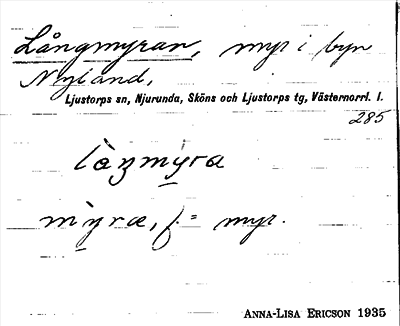 Långmyran, myr i byn
Nyland,
Ljustorps sn, Njurunda, Sköns och Ljustorps tg, Västernorrl. l.
285
làŋmyra
mỳra, f = myr.
ANNA-LISA ERICSON 1935